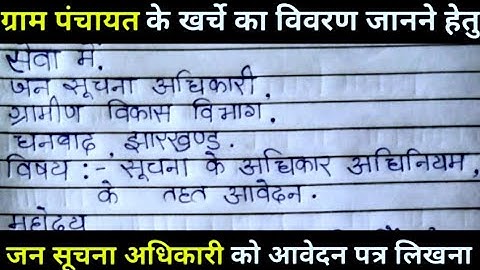 ग्राम पंचायत के खर्चे का विवरण जानने हेतु
सेवा में,
जन सूचना अधिकारी,
ग्रामीण विकास विभाग.
धनबाद, झारखण्ड.
विषय :- सूचना के अधिकार अधिनियम,
के तहत आवेदन.
महोदय
जन सूचना अधिकारी को आवेदन पत्र लिखना